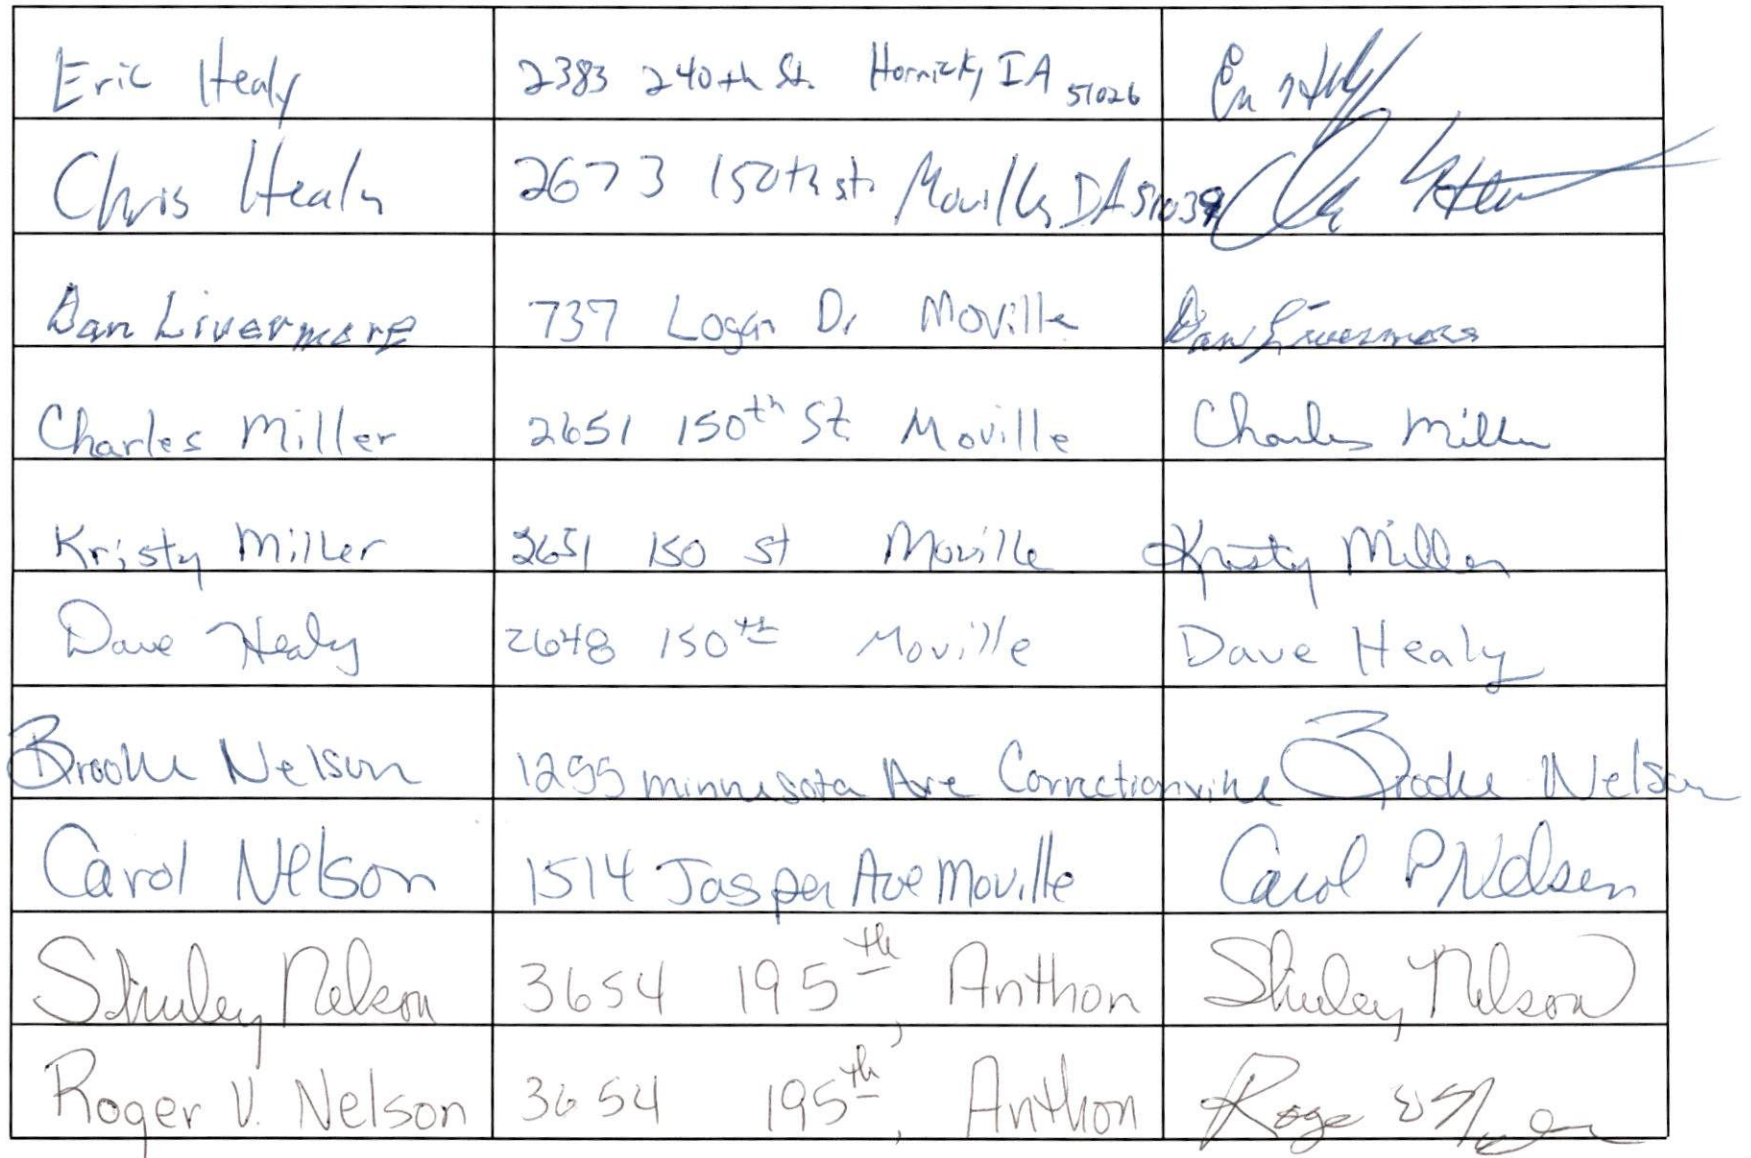 Eric Healy 2383 240th St. Hornick, IA 51026
Chris Healy 2673 150th st. Moville, IA 51039
Dan Livermore 737 Logan Dr Moville Dan Livermore
Charles Miller 2651 150th St. Moville Charles Miller
Kristy Miller 2651 150 St Moville Kristy Miller
Dave Healy 2648 150th Moville Dave Healy
Brooke Nelson 1255 Minnesota Ave Correctionville Brooke Nelson
Carol Nelson 1514 Jasper Ave Moville Carol P Nelson
Shirley Nelson 3654 195th, Anthon Shirley Nelson
Roger V. Nelson 3654 195th, Anthon Roger